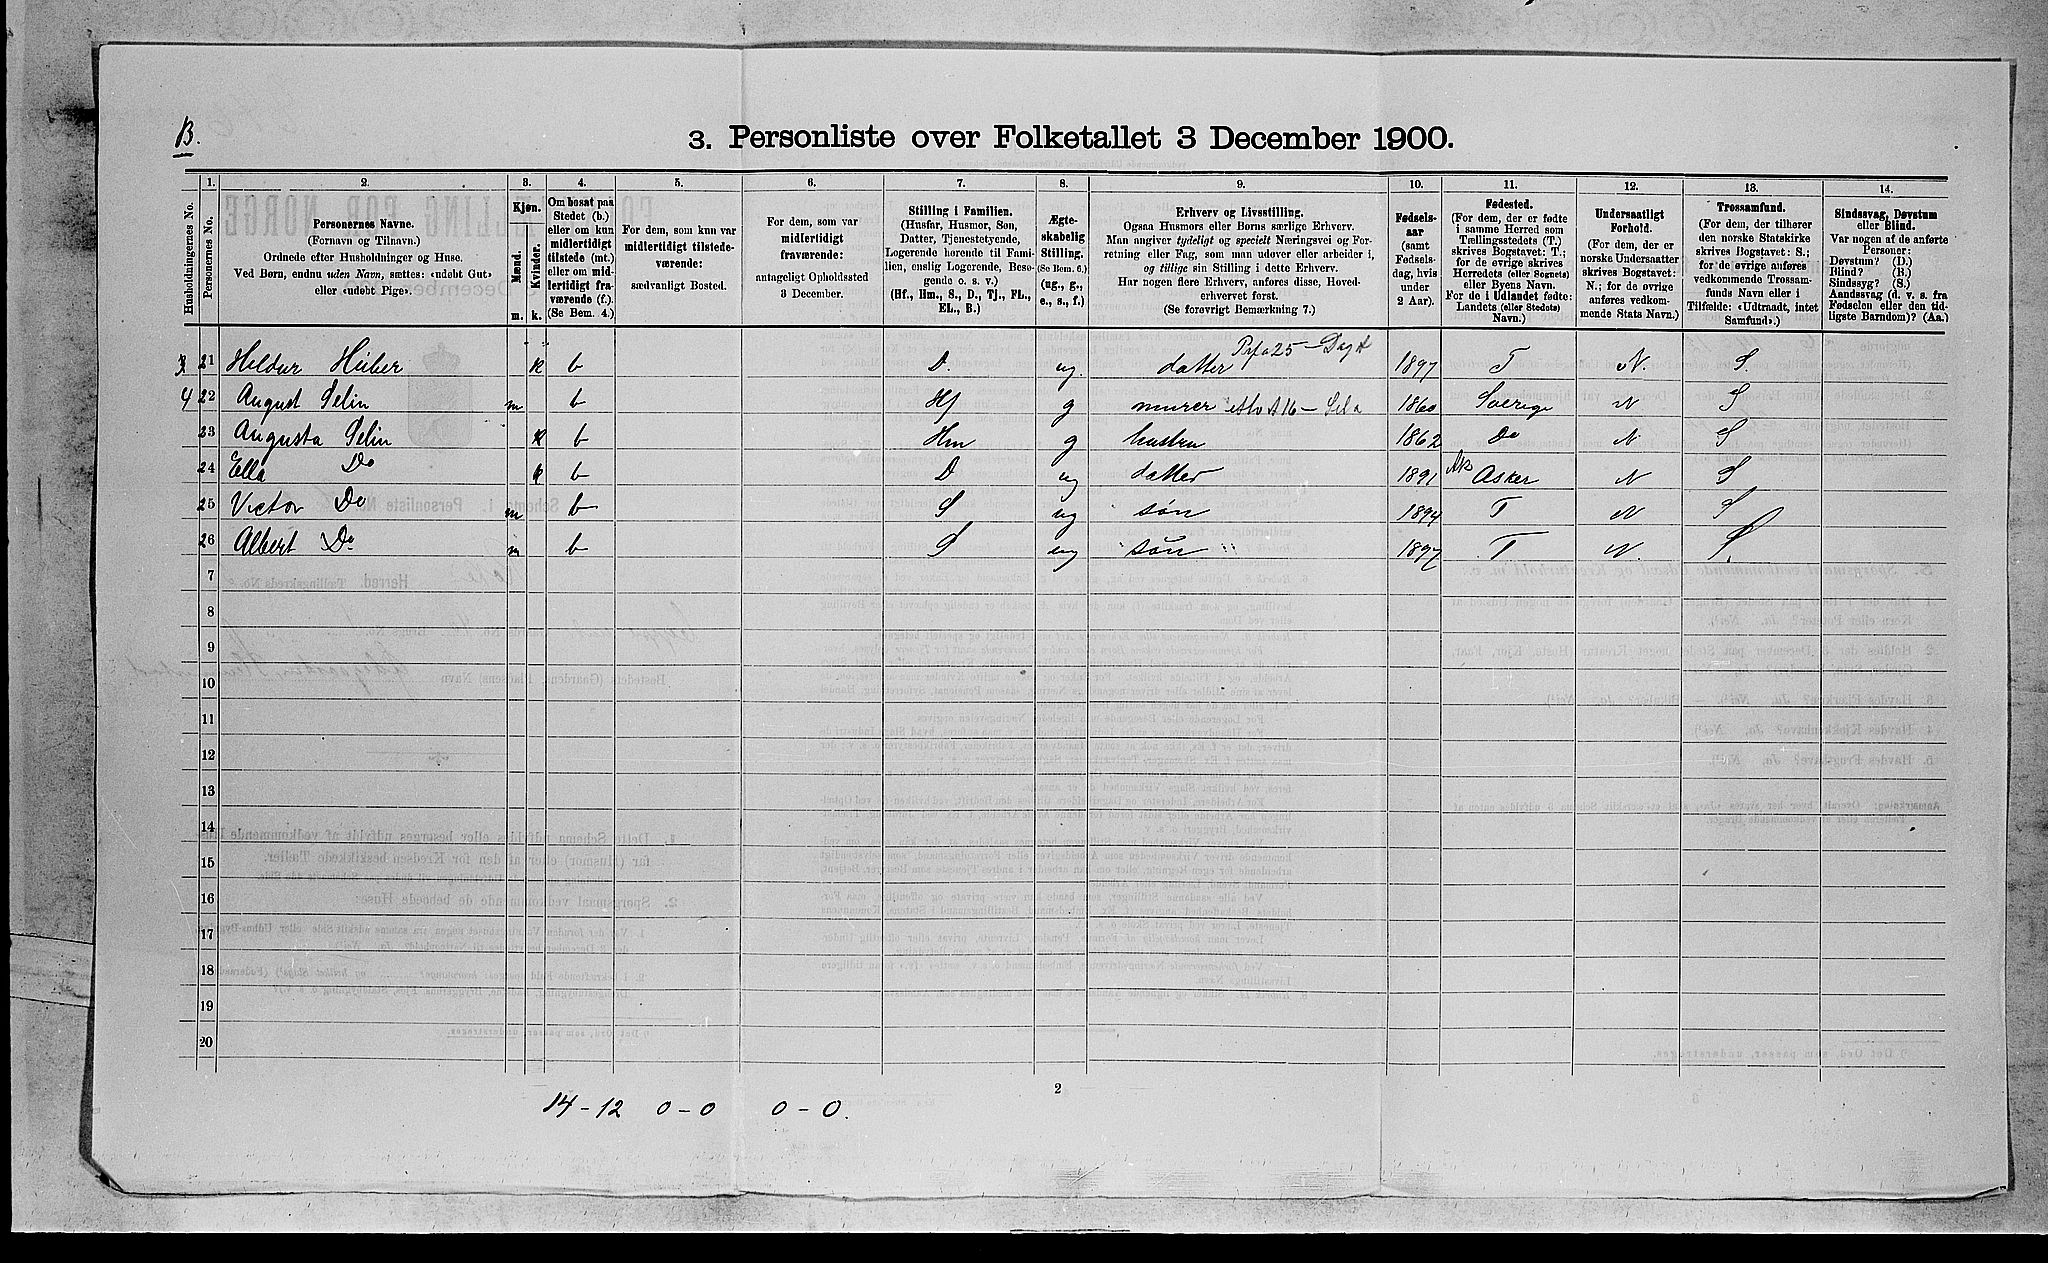 B.
3. Personliste over Folketallet 3 December 1900.
Husholdningernes No.
1.
Personernes No.
2.
Personernes Navne.
(Fornavn og Tilnavn.)
Ordnede efter Husholdninger og Huse.
Ved Børn, endnu uden Navn, sættes: «udøbt Gut»
eller «udøbt Pige».
3.
Kjøn.
Mænd.
Kvinder.
m. k.
4.
Om bosat paa
Stedet (b.)
eller om kun
midlertidigt
tilstede (mt.)
eller om mid-
lertidigt fra-
værende (f.)
(Se Bem. 4.)
5.
For dem, som kun var
midlertidigt tilstede-
værende:
sædvanligt Bosted.
6.
For dem, som var
midlertidigt
fraværende:
antageligt Opholdssted
3 December.
7.
Stilling i Familien.
(Husfar, Husmor, Søn,
Datter, Tjenestetyende,
Logerende hørende til Fami-
lien, enslig Logerende, Besø-
gende o. s. v.)
(Hf., Hm., S., D., Tj., FL.,
EL., B.)
8.
Ægte-
skabelig
Stilling.
(Se Bem. 6.)
(ug., g.,
e., s., f.)
9.
Erhverv og Livsstilling.
Ogsaa Husmors eller Børns særlige Erhverv.
Man angiver tydeligt og specielt Næringsvei og For-
retning eller Fag, som man udøver eller arbeider i,
og tillige sin Stilling i dette Erhverv.
Har nogen flere Erhverv, anføres disse, Hoved-
erhvervet først.
(Se forøvrigt Bemærkning 7.)
10.
Fødsels-
aar
(samt
Fødsels-
dag, hvis
under
2 Aar).
11.
Fødested.
(For dem, der er fødte
i samme Herred som
Tællingsstedets (T.)
skrives Bogstavet: T.;
for de øvrige skrives
Herredets (eller Sognets)
eller Byens Navn.
For de i Udlandet fødte:
Landets (eller Stedets)
Navn.)
12.
Undersaatligt
Forhold.
(For dem, der er
norske Undersaatter
skrives Bogstavet:
N.; for de øvrige
anføres vedkom-
mende Stats Navn.)
13.
Trossamfund.
(For dem, der tilhører
den norske Statskirke
skrives Bogstavet: S.;
for de øvrige anføres
vedkommende Trossam-
funds Navn eller i
Tilfælde: «Udtraadt, intet
Samfund».)
14.
Sindssvag, Døvstum
eller Blind.
Var nogen af de anførte
Personer:
Døvstum? (D.)
Blind? (B.)
Sindssyg? (S.)
Aandssvag (d. v. s. fra
Fødselen eller den tid-
ligste Barndom)? (Aa.)
3 21 Heldur Hüber k b D. ug. datter 1897 T N. S.
4 22 August Selin m b Hf g murer 1860 Sverige N S
23 Augusta Selin k b Hm g hustru 1862 Do N S
24 Ella Do k b D ug datter 1891 Asker N S
25 Victor Do m b S ug søn 1894 T N S
26 Albert Do m b S ug søn 1897 T N S.
7
8
9
10
11
12
13
14
15
16
17
18
19
20
2
14 - 12 0 - 0 0 - 0.